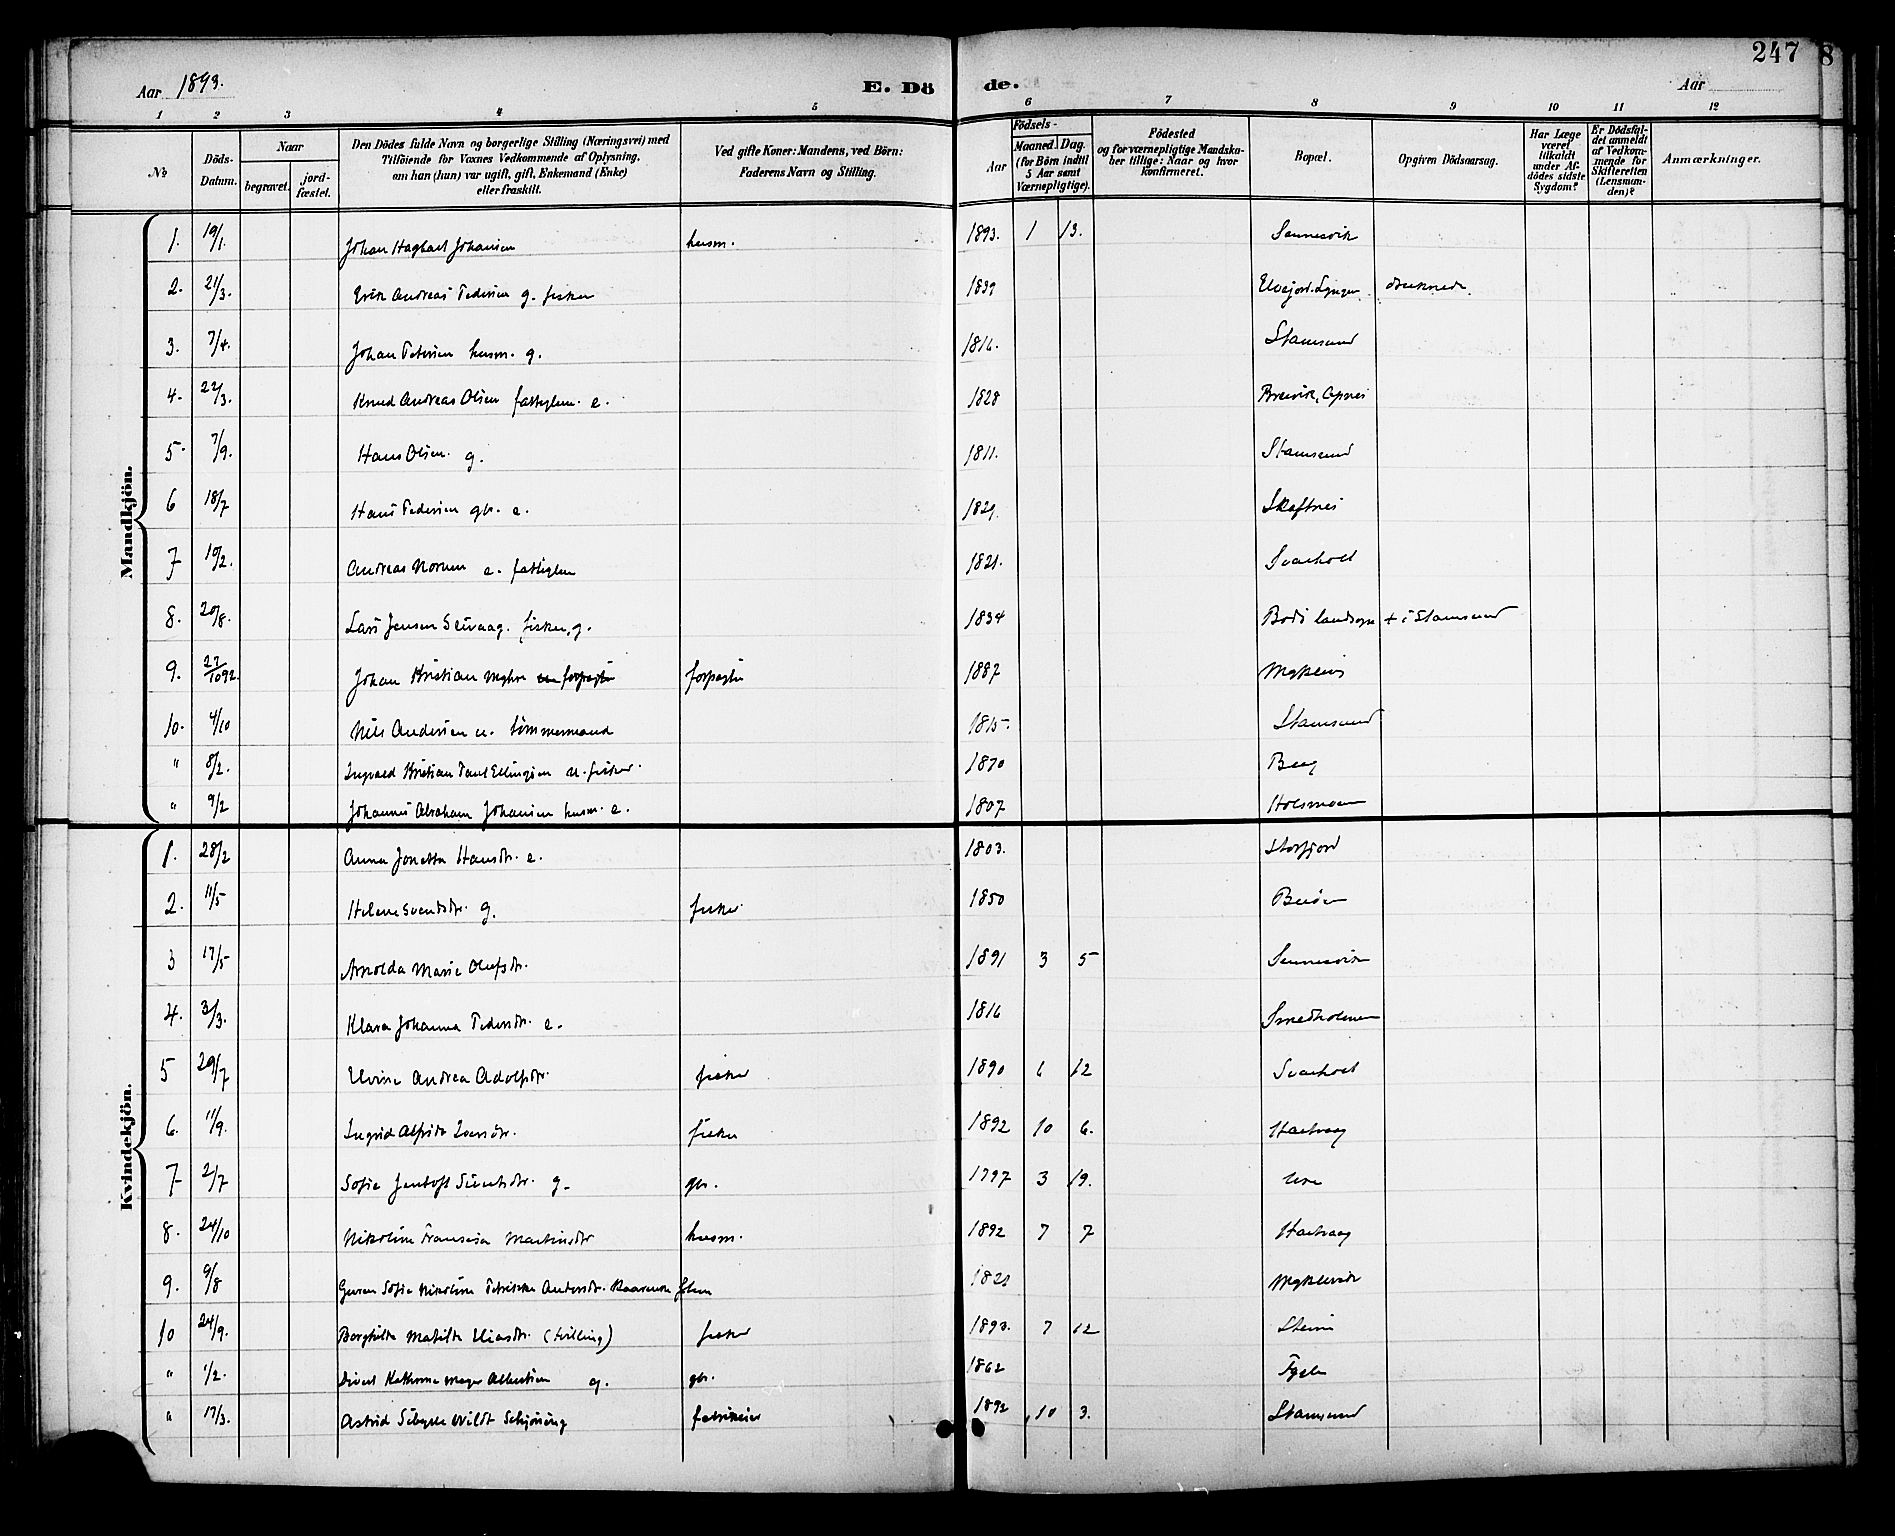 247 8
Aar 1893.
E. Dö de.
Aar
1 2 3 4 5 6 7 8 9 10 11 12
No
Döds-Datum.
Naar
begravet.
jord-fæstet.
Den Dödes fulde Navn og borgerlige Stilling (Næringsvei) med
Tilföiende for Voxnes Vedkommende af Oplysning,
om han (hun) var ugift, gift, Enkemand (Enke)
eller fraskilt.
Ved gifte Koner: Mandens, ved Börn:
Faderens Navn og Stilling.
Födsels-
Aar
Maaned. Dag.
(for Börn indtil
5 Aar samt
Værnepligtige).
Födested
og for værnepligtige Mandska-
ber tillige: Naar og hvor
konfirmeret.
Bopæl.
Opgiven Dödsaarsag.
Har Læge
været
tilkaldt
under Af-
dödes sidste
Sygdom?
Er Dödsfal-
det anmeldt
af Vedkom-
mende for
Skifteretten
(Lensman-
den)?
Anmærkninger.
Mandkjön.
1. 19/1. Johan Hagbart Johansen husm. 1893. 1 13. Sennesvik
2. 21/3. Erik Andreas Pedersen g. fisker 1839 Elvejord. Lyngen druknede.
3. 7/4. Johan Petersen husm. g. 1816. Stamsund
4. 22/3. Knud Andreas Olsen fattiglem. e. 1828 Breivik,
5. 7/9. Hans Olsen. g. 1811. Stamsund
6 18/7 Hans Pedersen gbr. e. 1829. Skaftnes
7 10/2. Andreas Normen e. fattiglem 1821. Svarholt
8. 20/8. Lars Jensen Seivaag. fisker, g. 1834 Bodö landsogn + i Stamsund
9. 27/10 92. Johan Kristian Myhre forpagter 1887
10. 4/10 Nils Andersen u. tömmermand 1815. Stamsund
" 8/2. Ingvald Kristian Paul Ellingsen u. fisker. 1870 Berg
" 9/2 Johannes Abraham Johansen husm. e. 1807 Holsmoen
Kvindekjön.
1. 28/2 Anna Jonetta Hansdtr. e. 1803. Storfjord
2. 11/5 Helene Svendsdtr. g. fisker 1850
3 17/5 Arnolda Marie Olufsdtr. 1891 3 5 Sennesvik
4. 3/3. Klara Johanna Pedersdtr. e. 1816 Smedholmen
5 29/7 Elvine Andrea Adolfsdtr. fisker 1890 6 12 Svarholt
6. 11/9. Ingrid Alfride Iversdtr. fisker 1892 10 6. Hartvaag
7 2/7 Sofie Jentoft Sivertsdtr. g. gbr. 1797 3 19. Ure
8. 24/10 Nikoline Fransiska Martinsdtr husm. 1892 7 7 Hartvaag
9. 9/8 Guren Sofie Nikoline Petrikke Andersdtr. 1821
10 24/9. Borghilde Matilde Eliasdtr. (tvilling) fisker 1893. 7 12 Steine
" 1/2. Sivert Kathrine Meyer Albertsen g. gbr. 1862 Fygle
" 17/3. Astrid Sibylle Wildt Schjöning fabrikeier 1892 10 3. Stamsund